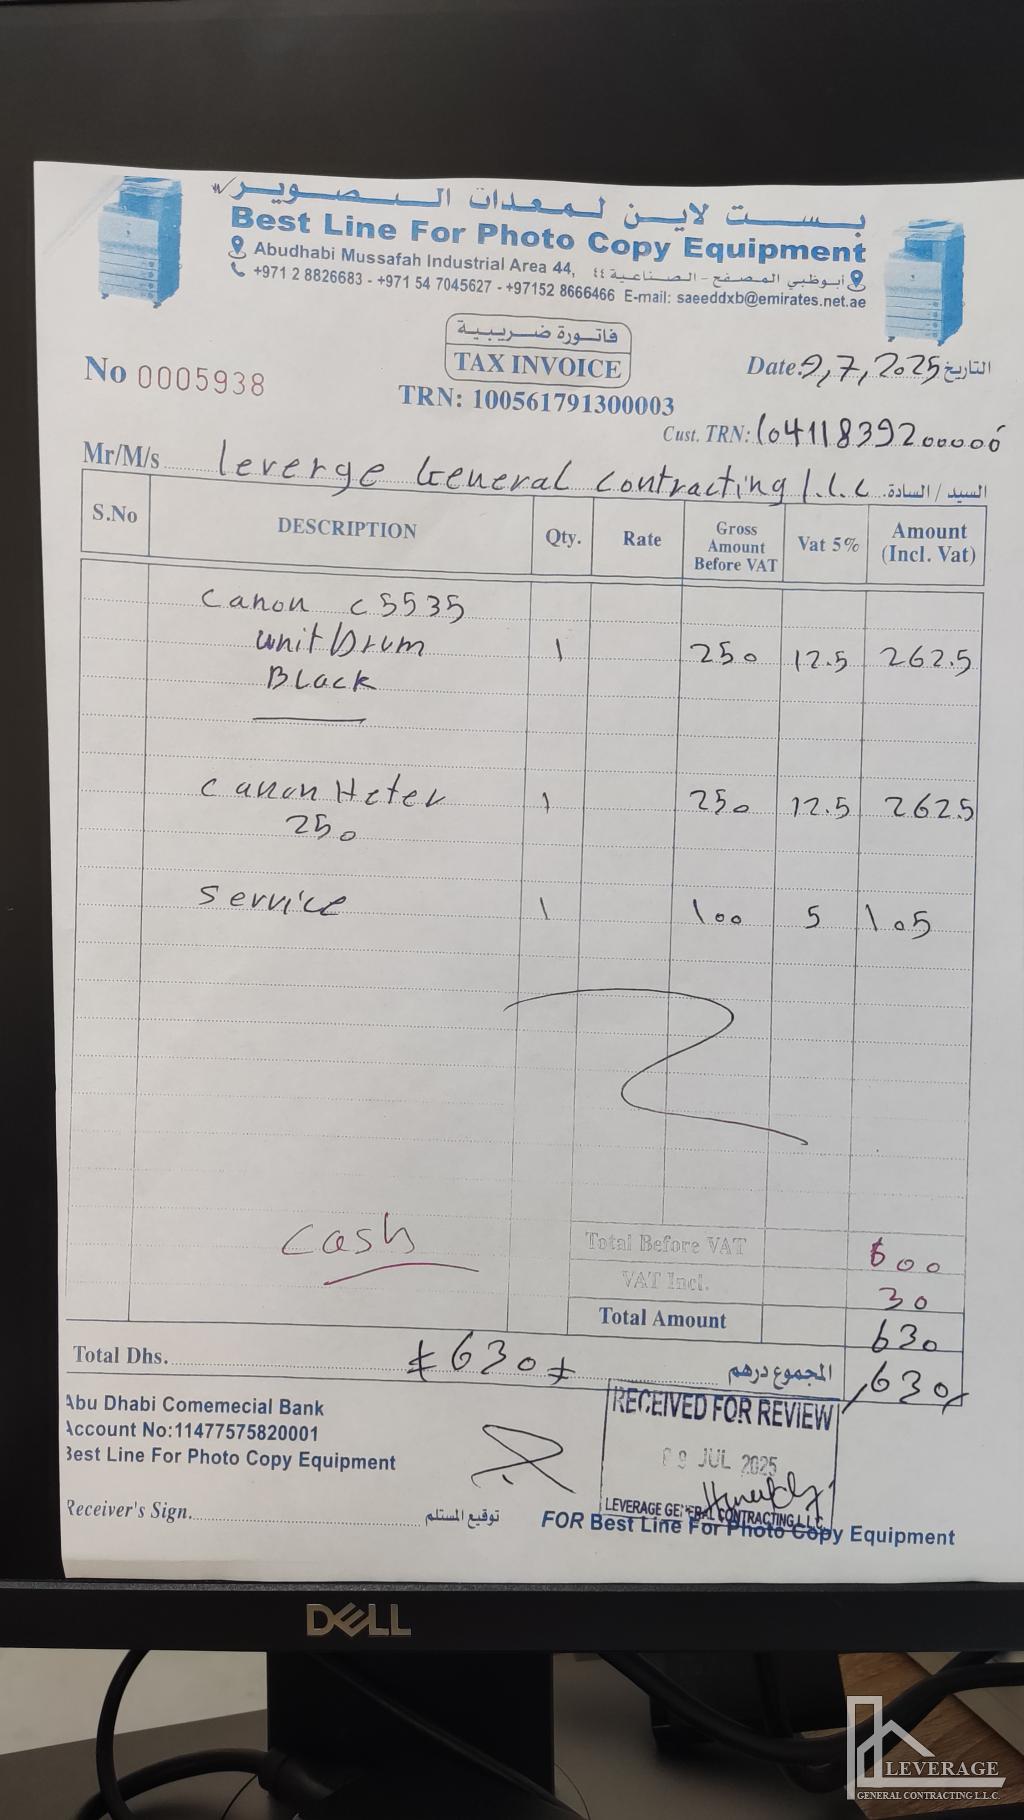 بست لاين لمعدات التصوير
Best Line For Photo Copy Equipment
Abudhabi Mussafah Industrial Area 44, أبوظبي المصفح - الصناعية ٤٤
+971 2 8826683 - +971 54 7045627 - +97152 8666466 E-mail: saeeddxb@emirates.net.ae
فاتورة ضريبية
TAX INVOICE
No 0005938
Date: 9,7,2025 التاريخ
TRN: 100561791300003
Cust. TRN: 10411839200000
Mr/M/s leverge General Contracting l.l.c السيد / السادة
S.No DESCRIPTION Qty. Rate Gross Amount Before VAT Vat 5% Amount (Incl. Vat)
Canon C5535
unit Drum 1 250 12.5 262.5
Black
Canon Heter 1 250 12.5 262.5
250
Service 1 100 5 105
Cash
Total Before VAT 600
VAT Incl. 30
Total Amount 630
Total Dhs. 630 المجموع درهم 630
Abu Dhabi Comemecial Bank
Account No:11477575820001
Best Line For Photo Copy Equipment
RECEIVED FOR REVIEW
09 JUL 2025
LEVERAGE GENERAL CONTRACTING L.L.C.
Receiver's Sign. توقيع المستلم
FOR Best Line For Photo Copy Equipment
DELL
LEVERAGE
GENERAL CONTRACTING L.L.C.